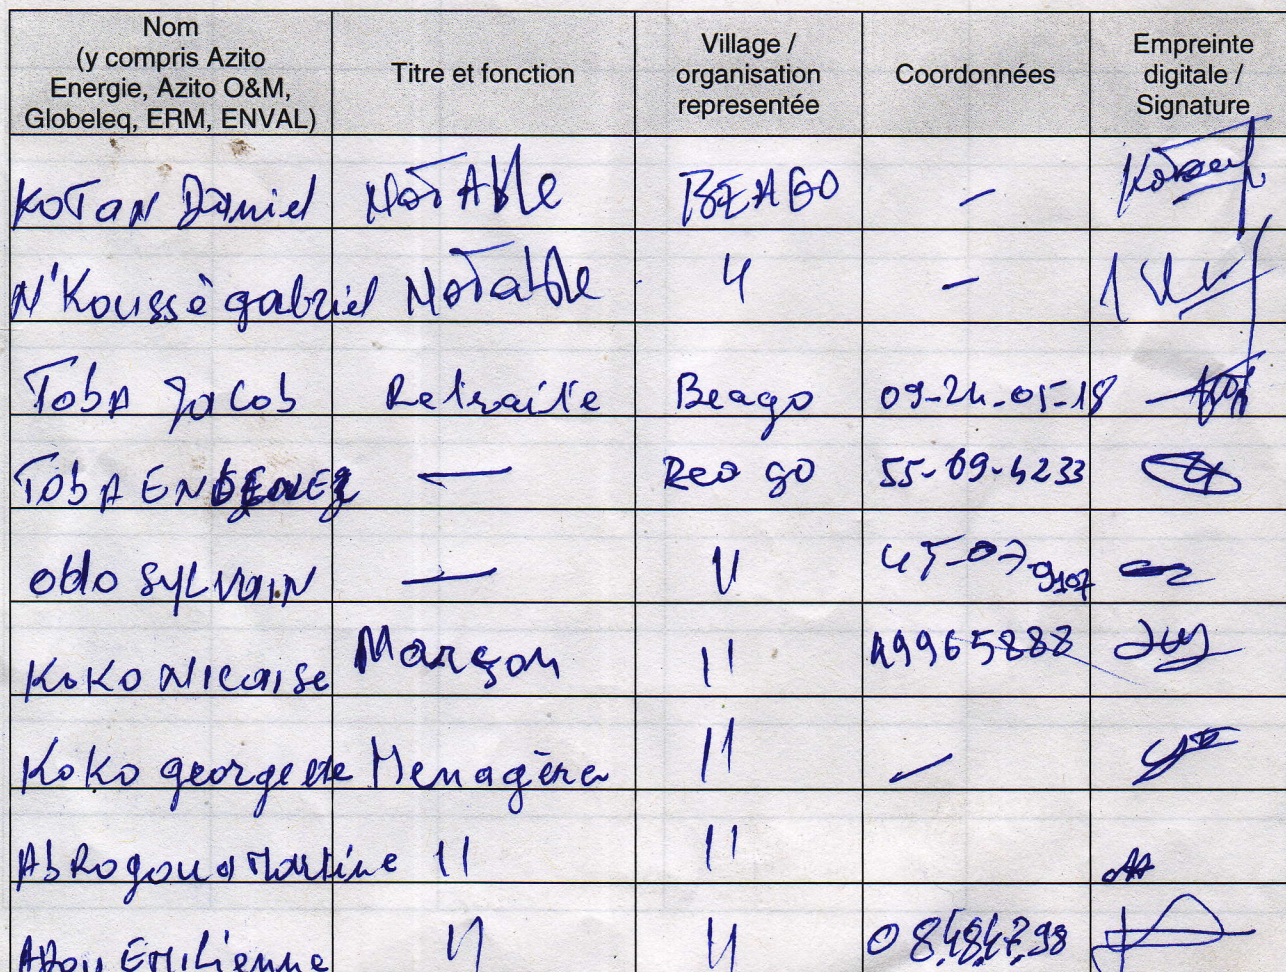 Nom
(y compris Azito
Energie, Azito O&M,
Globeleq, ERM, ENVAL)
Titre et fonction
Village /
organisation
representée
Coordonnées
Empreinte
digitale /
Signature
KOTAN Daniel NOTABle BEAGO —
N'Koussè gabriel NoTable 〃 —
TobA Jacob Retraité Beago 09-24-05-18
TobA — Beago 55-09-4233
obo SYLVAIN — 〃 45-07-9107
KoKo Nicaise Marçon 〃 49965888
KoKo georgette Menagère 〃 —
Martine 〃 〃
EMiLienne 〃 〃 08,48,47,98